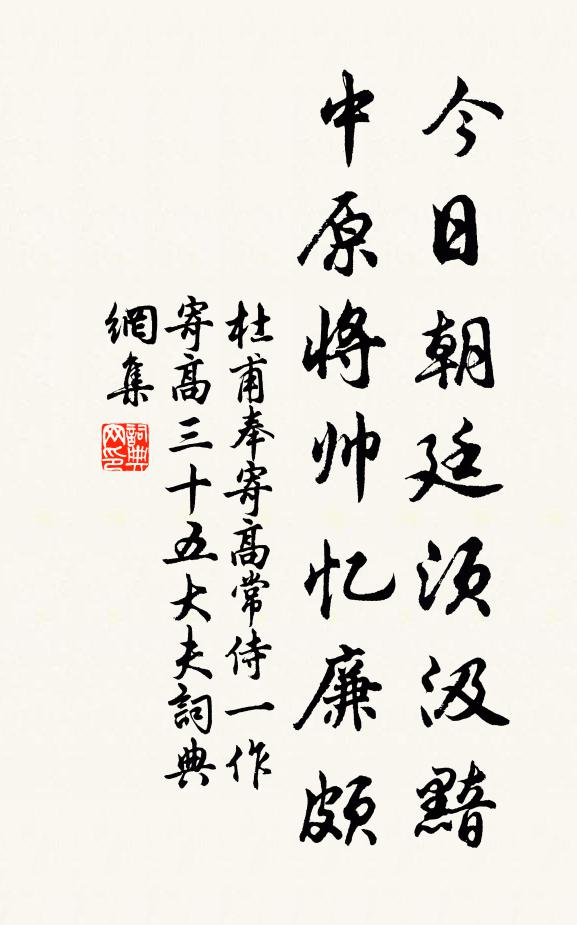 今日朝廷須汲黯
中原將帅忆廉頗
杜甫奉寄高常侍一作
寄高三十五大夫詞典
網集
詞典网印